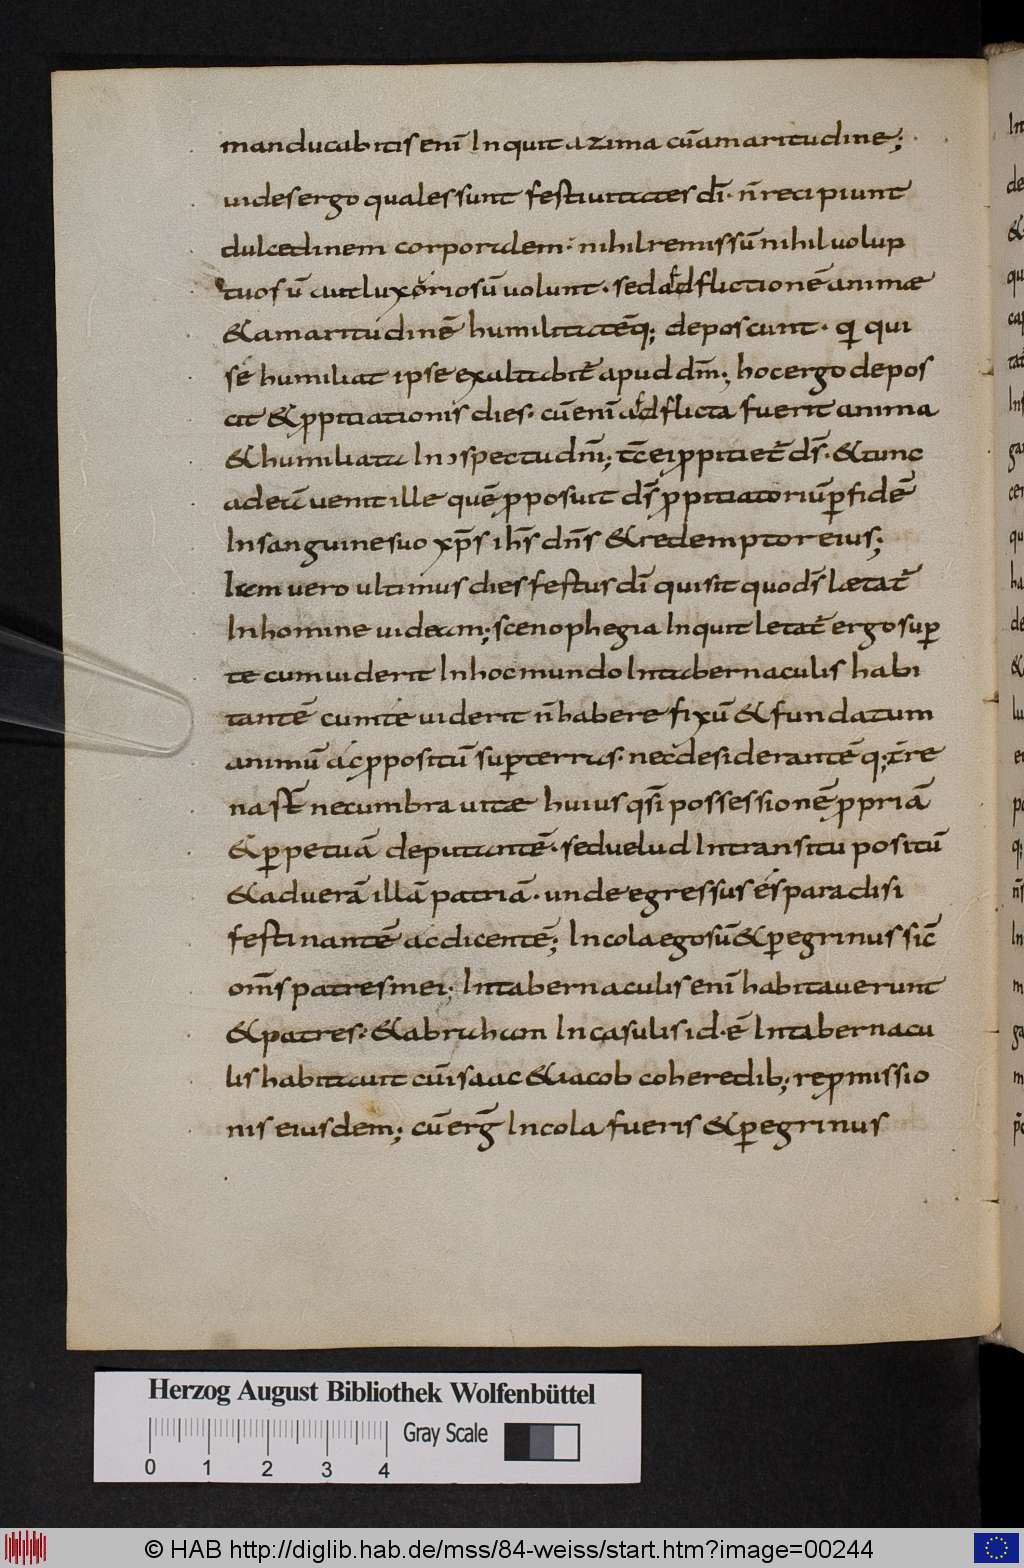 manducabitis enī Inquit azima cū amaritudine;
uides ergo quales sunt festiuitates dī· n̄ recipiunt
dulcedinem corporalem· nihil remissū nihil uolup
tuosū aut luxoriosū uolunt· sed adflictionē animæ
& amaritudinē humilitatēq; deposcunt· q̄ qui
se humiliat ipse exaltabit̄ apud dm̄; hoc ergo depos
cit & ꝓpitiationis dies· cū enī adflicta fuerit anima
& humiliata In ɔspectu dnī; tc̄ ei ꝓpitiet̄ ds̄· & tunc
ad eū uenit ille quē ꝓposuit ds̄ ꝓpitiatoriū ꝑ fidē
In sanguine suo xp̄s ih̄s dn̄s & redemptor eius;
Iam uero ultimus dies festus dī qui sit quo ds̄ lætat̄
In homine uideam; scenophegia Inquit letat̄ ergo suꝑ
te cum uiderit In hoc mundo In tabernaculis habi
tantē cum te uiderit n̄ habere fixū & fundatum
animū ac ꝓpositū suꝑ terras· nec desiderantē q; t̄re
na st̄ nec umbra uitæ huius qsī possessionē ꝓpriā
& ꝑpetuā deputantē· sed uelud In transitu positū
& ad uerā illā patriā· unde egressus es paradisi
festinantē ac dicentē; Incola ego sū & ꝑegrinus sic̄
om̄s patres mei; In tabernaculis enī habitauerunt
& patres· & abraham In casulis id·ē In tabernacu
lis habitauit cū isaac & iacob coheredib; reꝓmissio
nis eiusdem; cū erḡ Incola fueris & ꝑegrinus
Herzog August Bibliothek Wolfenbüttel
0 1 2 3 4 Gray Scale
© HAB http://diglib.hab.de/mss/84-weiss/start.htm?image=00244